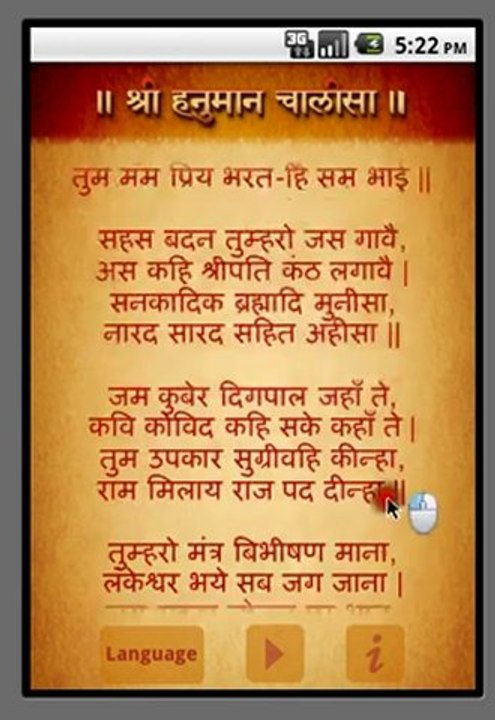 3G 5:22 PM
॥ श्री हनुमान चालीसा ॥
तुम मम प्रिय भरत-हि सम भाई ||
सहस बदन तुम्हरो जस गावै,
अस कहि श्रीपति कंठ लगावै |
सनकादिक ब्रह्मादि मुनीसा,
नारद सारद सहित अहीसा ||
जम कुबेर दिगपाल जहाँ ते,
कवि कोविद कहि सके कहाँ ते |
तुम उपकार सुग्रीवहि कीन्हा,
राम मिलाय राज पद दीन्हा ||
तुम्हरो मंत्र बिभीषण माना,
लंकेश्वर भये सब जग जाना |
Language
i